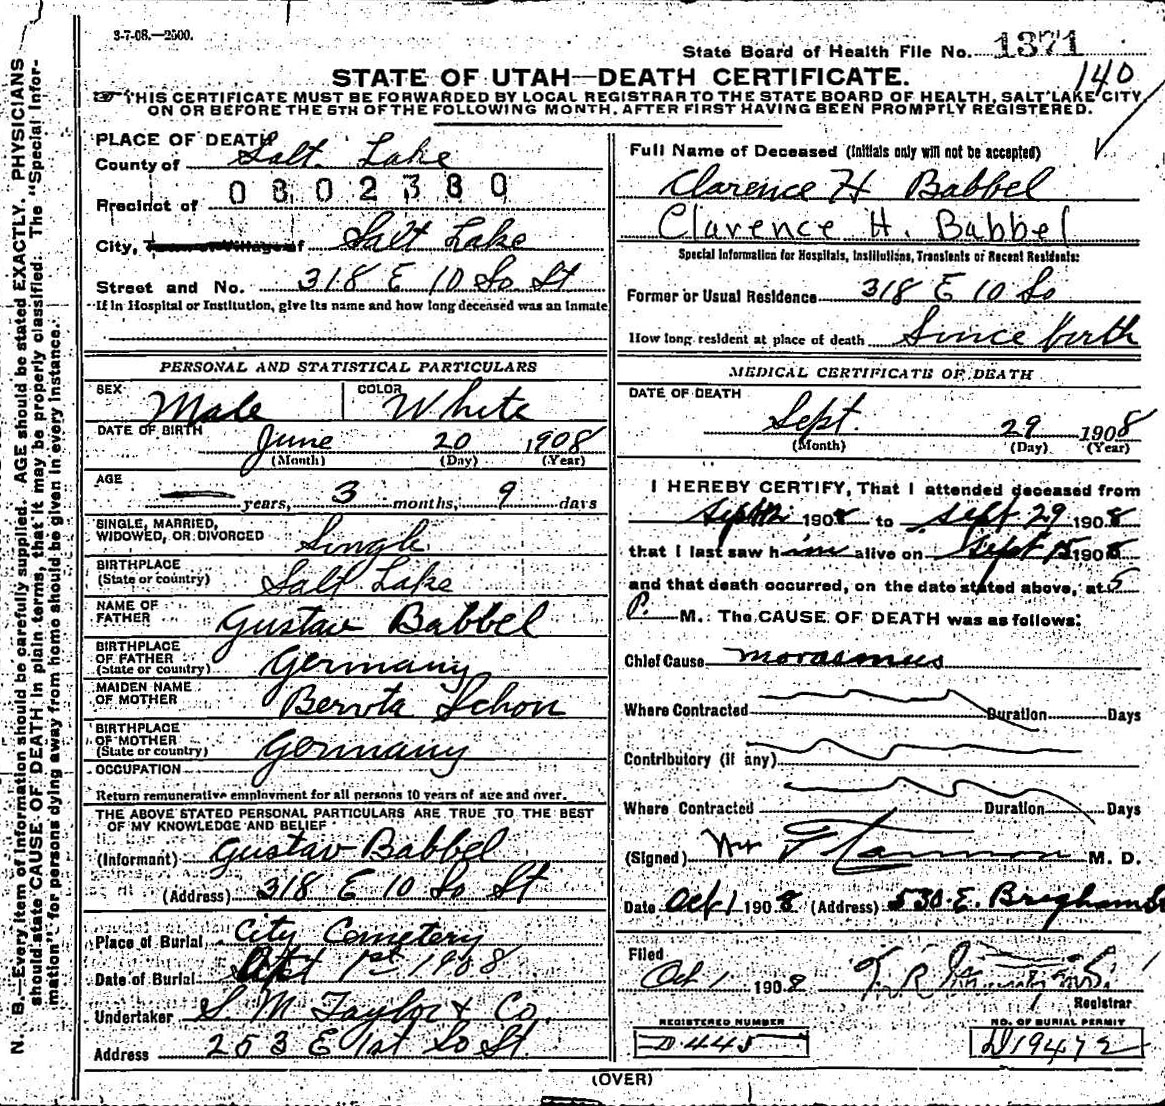 3-7-08.—2500.
State Board of Health File No. 1371
140
STATE OF UTAH—DEATH CERTIFICATE.
☞ THIS CERTIFICATE MUST BE FORWARDED BY LOCAL REGISTRAR TO THE STATE BOARD OF HEALTH, SALT LAKE CITY
ON OR BEFORE THE 5TH OF THE FOLLOWING MONTH, AFTER FIRST HAVING BEEN PROMPTLY REGISTERED.
N. B.—Every item of information should be carefully supplied. AGE should be stated EXACTLY. PHYSICIANS
should state CAUSE OF DEATH in plain terms, that it may be properly classified. The "Special Infor-
mation" for persons dying away from home should be given in every instance.
PLACE OF DEATH
County of Salt Lake
0802380
Precinct of
City, Salt Lake
Street and No. 318 E 10 So St
If in Hospital or Institution, give its name and how long deceased was an inmate
PERSONAL AND STATISTICAL PARTICULARS
SEX Male COLOR White
DATE OF BIRTH June 20 1908
(Month) (Day) (Year)
AGE — years, 3 months, 9 days
SINGLE, MARRIED,
WIDOWED, OR DIVORCED Single
BIRTHPLACE
(State or country) Salt Lake
NAME OF
FATHER Gustav Babbel
BIRTHPLACE
OF FATHER
(State or country) Germany
MAIDEN NAME
OF MOTHER Berrta Schon
BIRTHPLACE
OF MOTHER
(State or country) Germany
OCCUPATION
Return remunerative employment for all persons 10 years of age and over.
THE ABOVE STATED PERSONAL PARTICULARS ARE TRUE TO THE BEST
OF MY KNOWLEDGE AND BELIEF
(Informant) Gustav Babbel
(Address) 318 E 10 So St
Place of Burial City Cemetery
Date of Burial 1st 1908
Undertaker S. M. Taylor & Co.
Address 253 E 1st So St.
Full Name of Deceased (Initials only will not be accepted)
Clarence H Babbel
Clarence H. Babbel
Special Information for Hospitals, Institutions, Transients or Recent Residents:
Former or Usual Residence 318 E 10 So
How long resident at place of death Since birth
MEDICAL CERTIFICATE OF DEATH
DATE OF DEATH
Sept. 29 1908
(Month) (Day) (Year)
I HEREBY CERTIFY, That I attended deceased from
1908 to Sept 29 1908
that I last saw him alive on Sept 15 1908
and that death occurred, on the date stated above, at 5
P. M. The CAUSE OF DEATH was as follows:
Chief Cause morasmus
Where Contracted Duration Days
Contributory (if any)
Where Contracted Duration Days
(Signed) M. D.
Date Oct 1 1908 (Address) 530 E. Brigham St
Filed
Oct 1 1908
Registrar
REGISTERED NUMBER NO. OF BURIAL PERMIT
D445 D19472
(OVER)